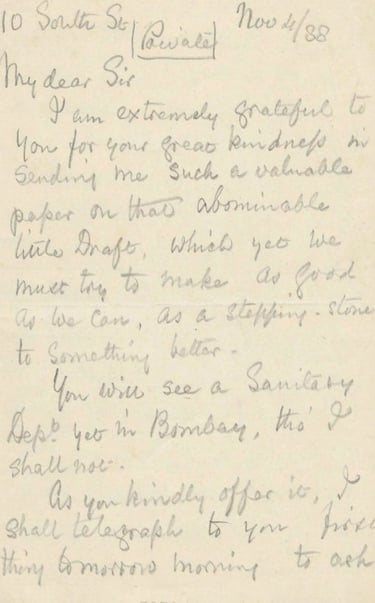 10 South St Nov 4/88
[Private]
My dear Sir
I am extremely grateful to
you for your great kindness in
sending me such a valuable
paper on that abominable
little Draft, which yet we
must try to make as good
as we can, as a stepping-stone
to something better.
You will see a Sanitary
Dept. yet in Bombay, tho' I
shall not.
As you kindly offer it, I
shall telegraph to you first
thing tomorrow morning to ask